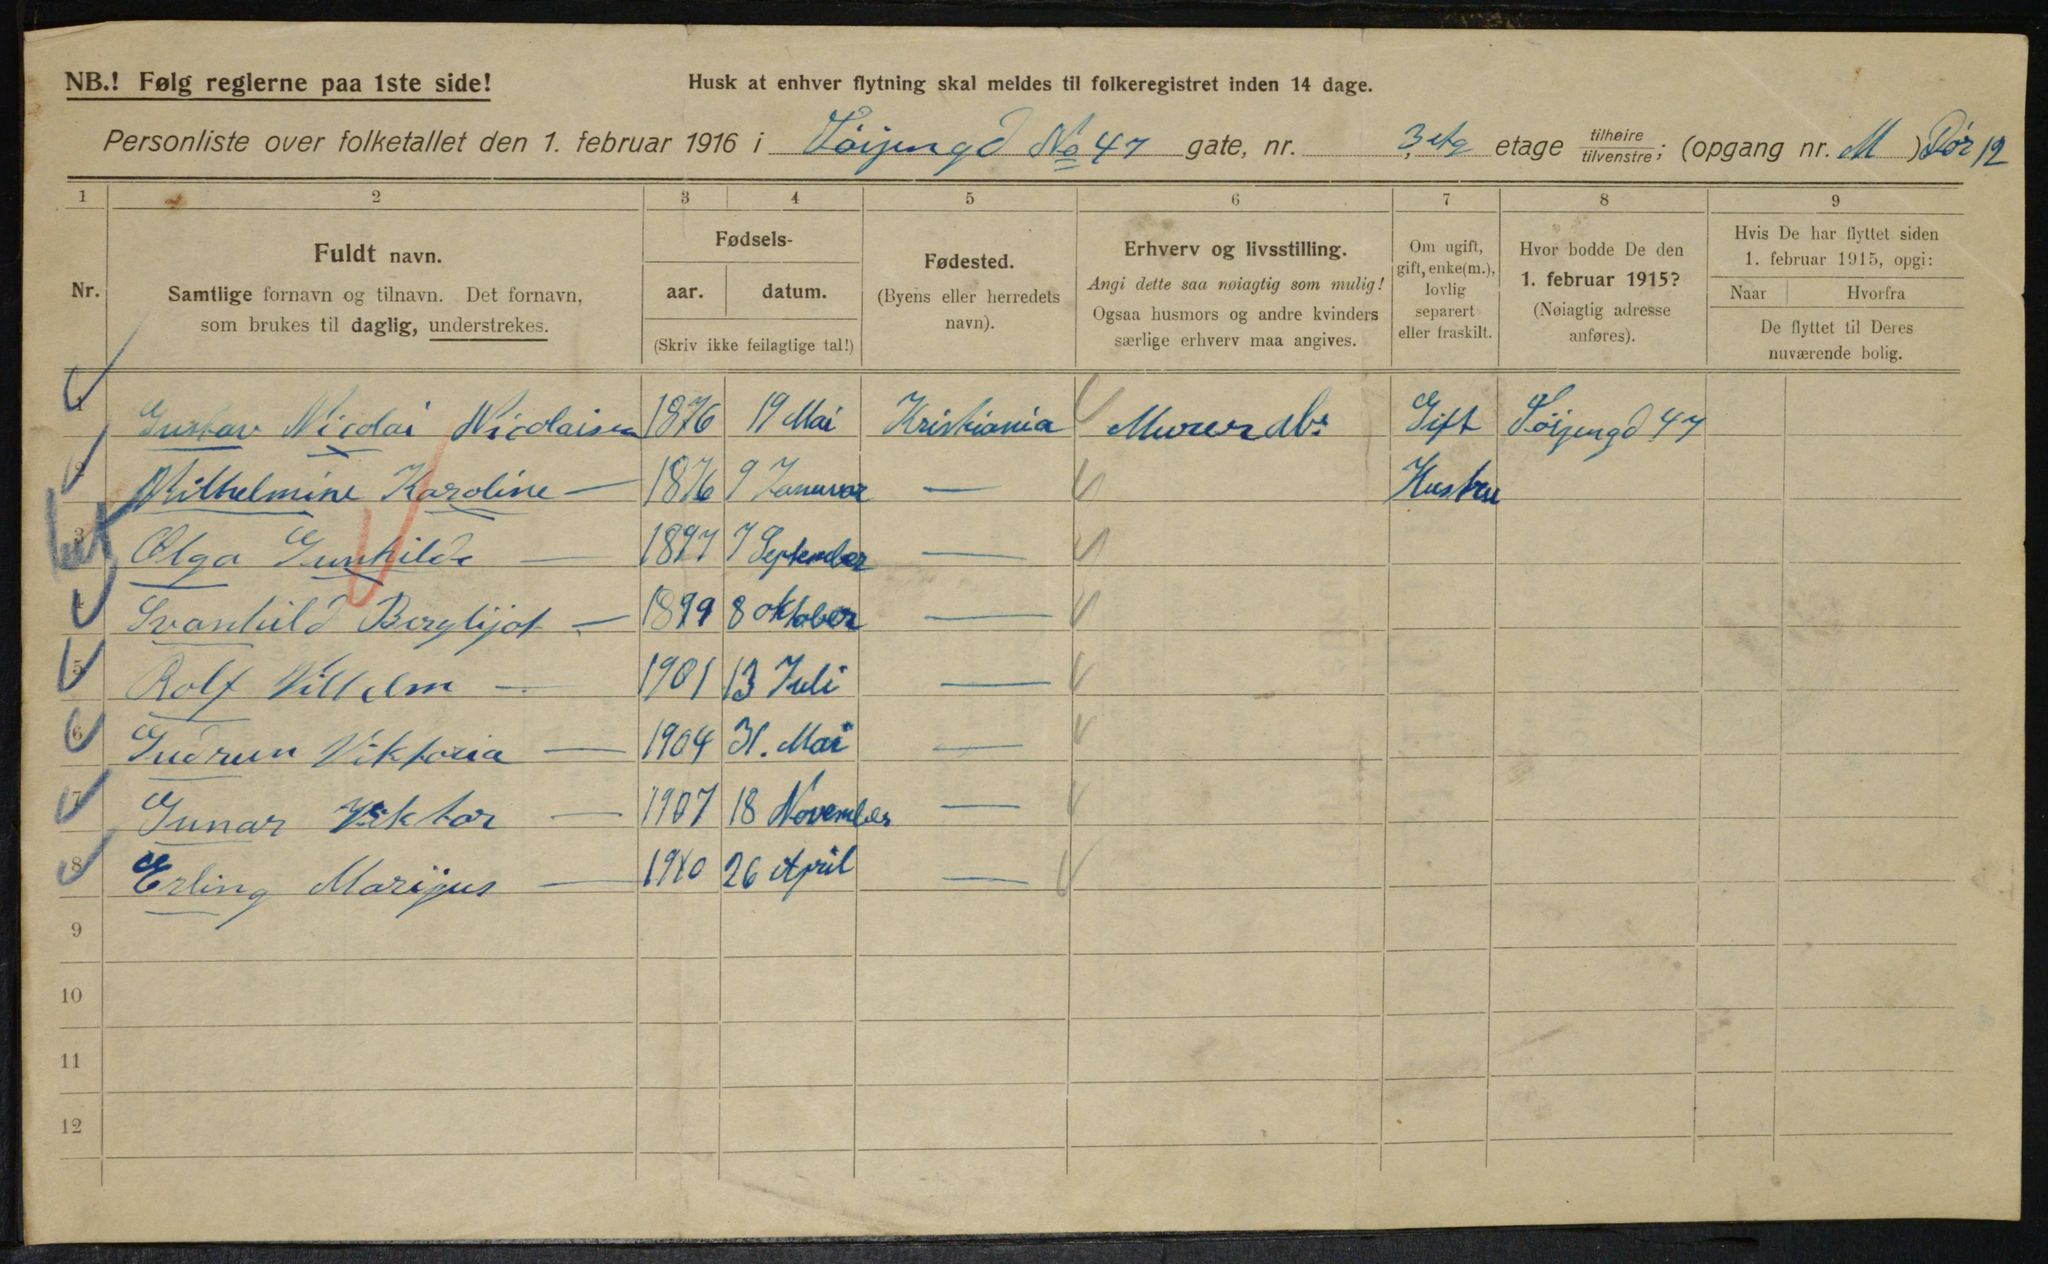 NB.! Følg reglerne paa 1ste side!
Husk at enhver flytning skal meldes til folkeregistret inden 14 dage.
Personliste over folketallet den 1. februar 1916 i Töijengd No 47 gate, nr. 3 etg etage tilhøire/tilvenstre; (opgang nr. M) Dør 12
1 2 3 4 5 6 7 8 9
Nr.
Fuldt navn.
Samtlige fornavn og tilnavn. Det fornavn,
som brukes til daglig, understrekes.
Fødsels-
aar. datum.
(Skriv ikke feilagtige tal!)
Fødested.
(Byens eller herredets
navn).
Erhverv og livsstilling.
Angi dette saa nøiagtig som mulig!
Ogsaa husmors og andre kvinders
særlige erhverv maa angives.
Om ugift,
gift, enke(m.),
lovlig
separert
eller fraskilt.
Hvor bodde De den
1. februar 1915?
(Nøiagtig adresse
anføres).
Hvis De har flyttet siden
1. februar 1915, opgi:
Naar Hvorfra
De flyttet til Deres
nuværende bolig.
1 Gustav Nicolai Nicolaisen 1876 19 Mai Kristiania Murer Gift Töijengd 47
2 Wilhelmine Karoline — 1876 9 Januar — Hustru
3 Olga Gunhilde — 1897 7 September —
4 Svanhild Berglijot — 1899 8 oktober —
5 Rolf Vilhelm — 1901 13 Juli —
6 Gudrun Viktoria — 1904 31. Mai —
7 Gunar Viktor — 1907 18 November —
8 Erling Marijus — 1910 26 April —
9
10
11
12